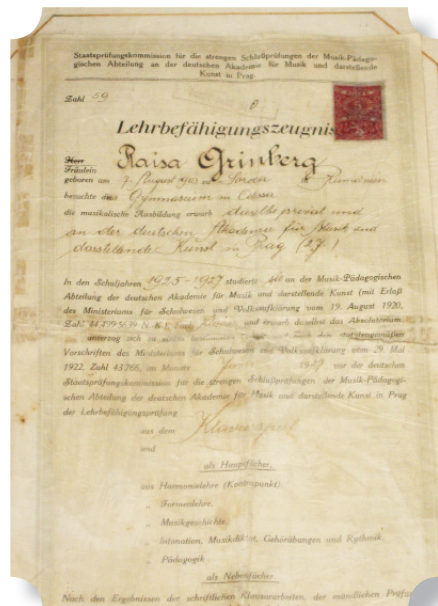 Staatsprüfungskommission für die strengen Schlußprüfungen der Musik-Pädago-
gischen Abteilung an der deutschen Akademie für Musik und darstellende
Kunst in Prag.
Zahl 59
Lehrbefähigungszeugnis
Herr
Fräulein Raisa Grinberg
geboren am 7. August 1903 in Soroca Rumänien
besuchte das Gymnasium in
die musikalische Ausbildung erwarb durch privat und
an der deutschen Akademie für Musik und
darstellende Kunst in Prag (27.)
In den Schuljahren 1925-1927 studierte an der Musik-Pädagogischen
Abteilung der deutschen Akademie für Musik und darstellende Kunst (mit Erlaß
des Ministeriums für Schulwesen und Volksaufklärung vom 19. August 1920,
Zahl und erwarb daselbst das Absolutorium
unterzog sich
Vorschriften des Ministeriums für Schulwesen und Volksaufklärung vom 29. Mai
1922, Zahl 43766, im Monate Juni 1927 vor der deutschen
Staatsprüfungskommission für die strengen Schlußprüfungen der Musik-Pädagogi-
schen Abteilung der deutschen Akademie für Musik und darstellende Kunst in Prag
der Lehrbefähigungsprüfung
aus dem Klavierspiel
und
als Hauptfächer,
aus Harmonielehre (Kontrapunkt),
„ Formenlehre,
„ Musikgeschichte,
„ Intonation, Musikdiktat, Gehörübungen und Rythmik,
„ Pädagogik
als Nebenfächer.
Nach den Ergebnissen der schriftlichen Klausurarbeiten, der mündlichen Prüfung